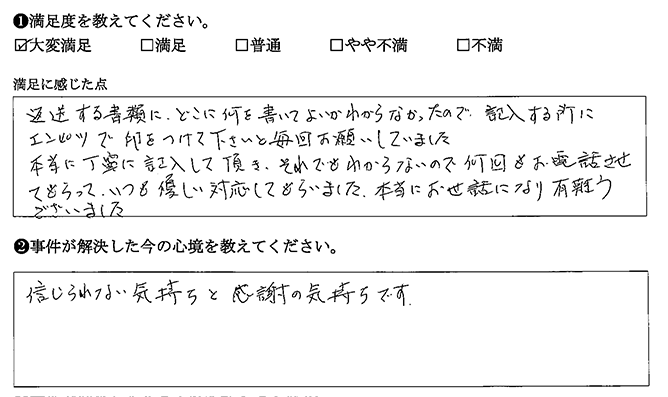 ❶満足度を教えてください。
☑大変満足 □満足 □普通 □やや不満 □不満
満足に感じた点
返送する書類に、どこに何を書いてよいかわからなかったので、記入する所に
エンピツで印をつけて下さいと毎回お願いしていました
本当に丁寧に記入して頂き、それでもわからないので何回もお電話させ
てもらって、いつも優しい対応してもらいました、本当にお世話になり有難う
ございました
❷事件が解決した今の心境を教えてください。
信じられない気持ちと感謝の気持ちです。